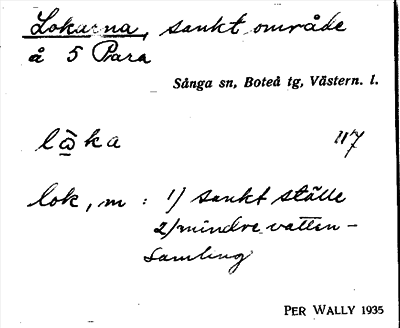 Lokarna, sankt område
å 5 Para
Sånga sn, Boteå tg, Västern. l.
lò̲ka 117
lok, m : 1) sankt ställe
2) mindre vatten-
samling
PER WALLY 1935